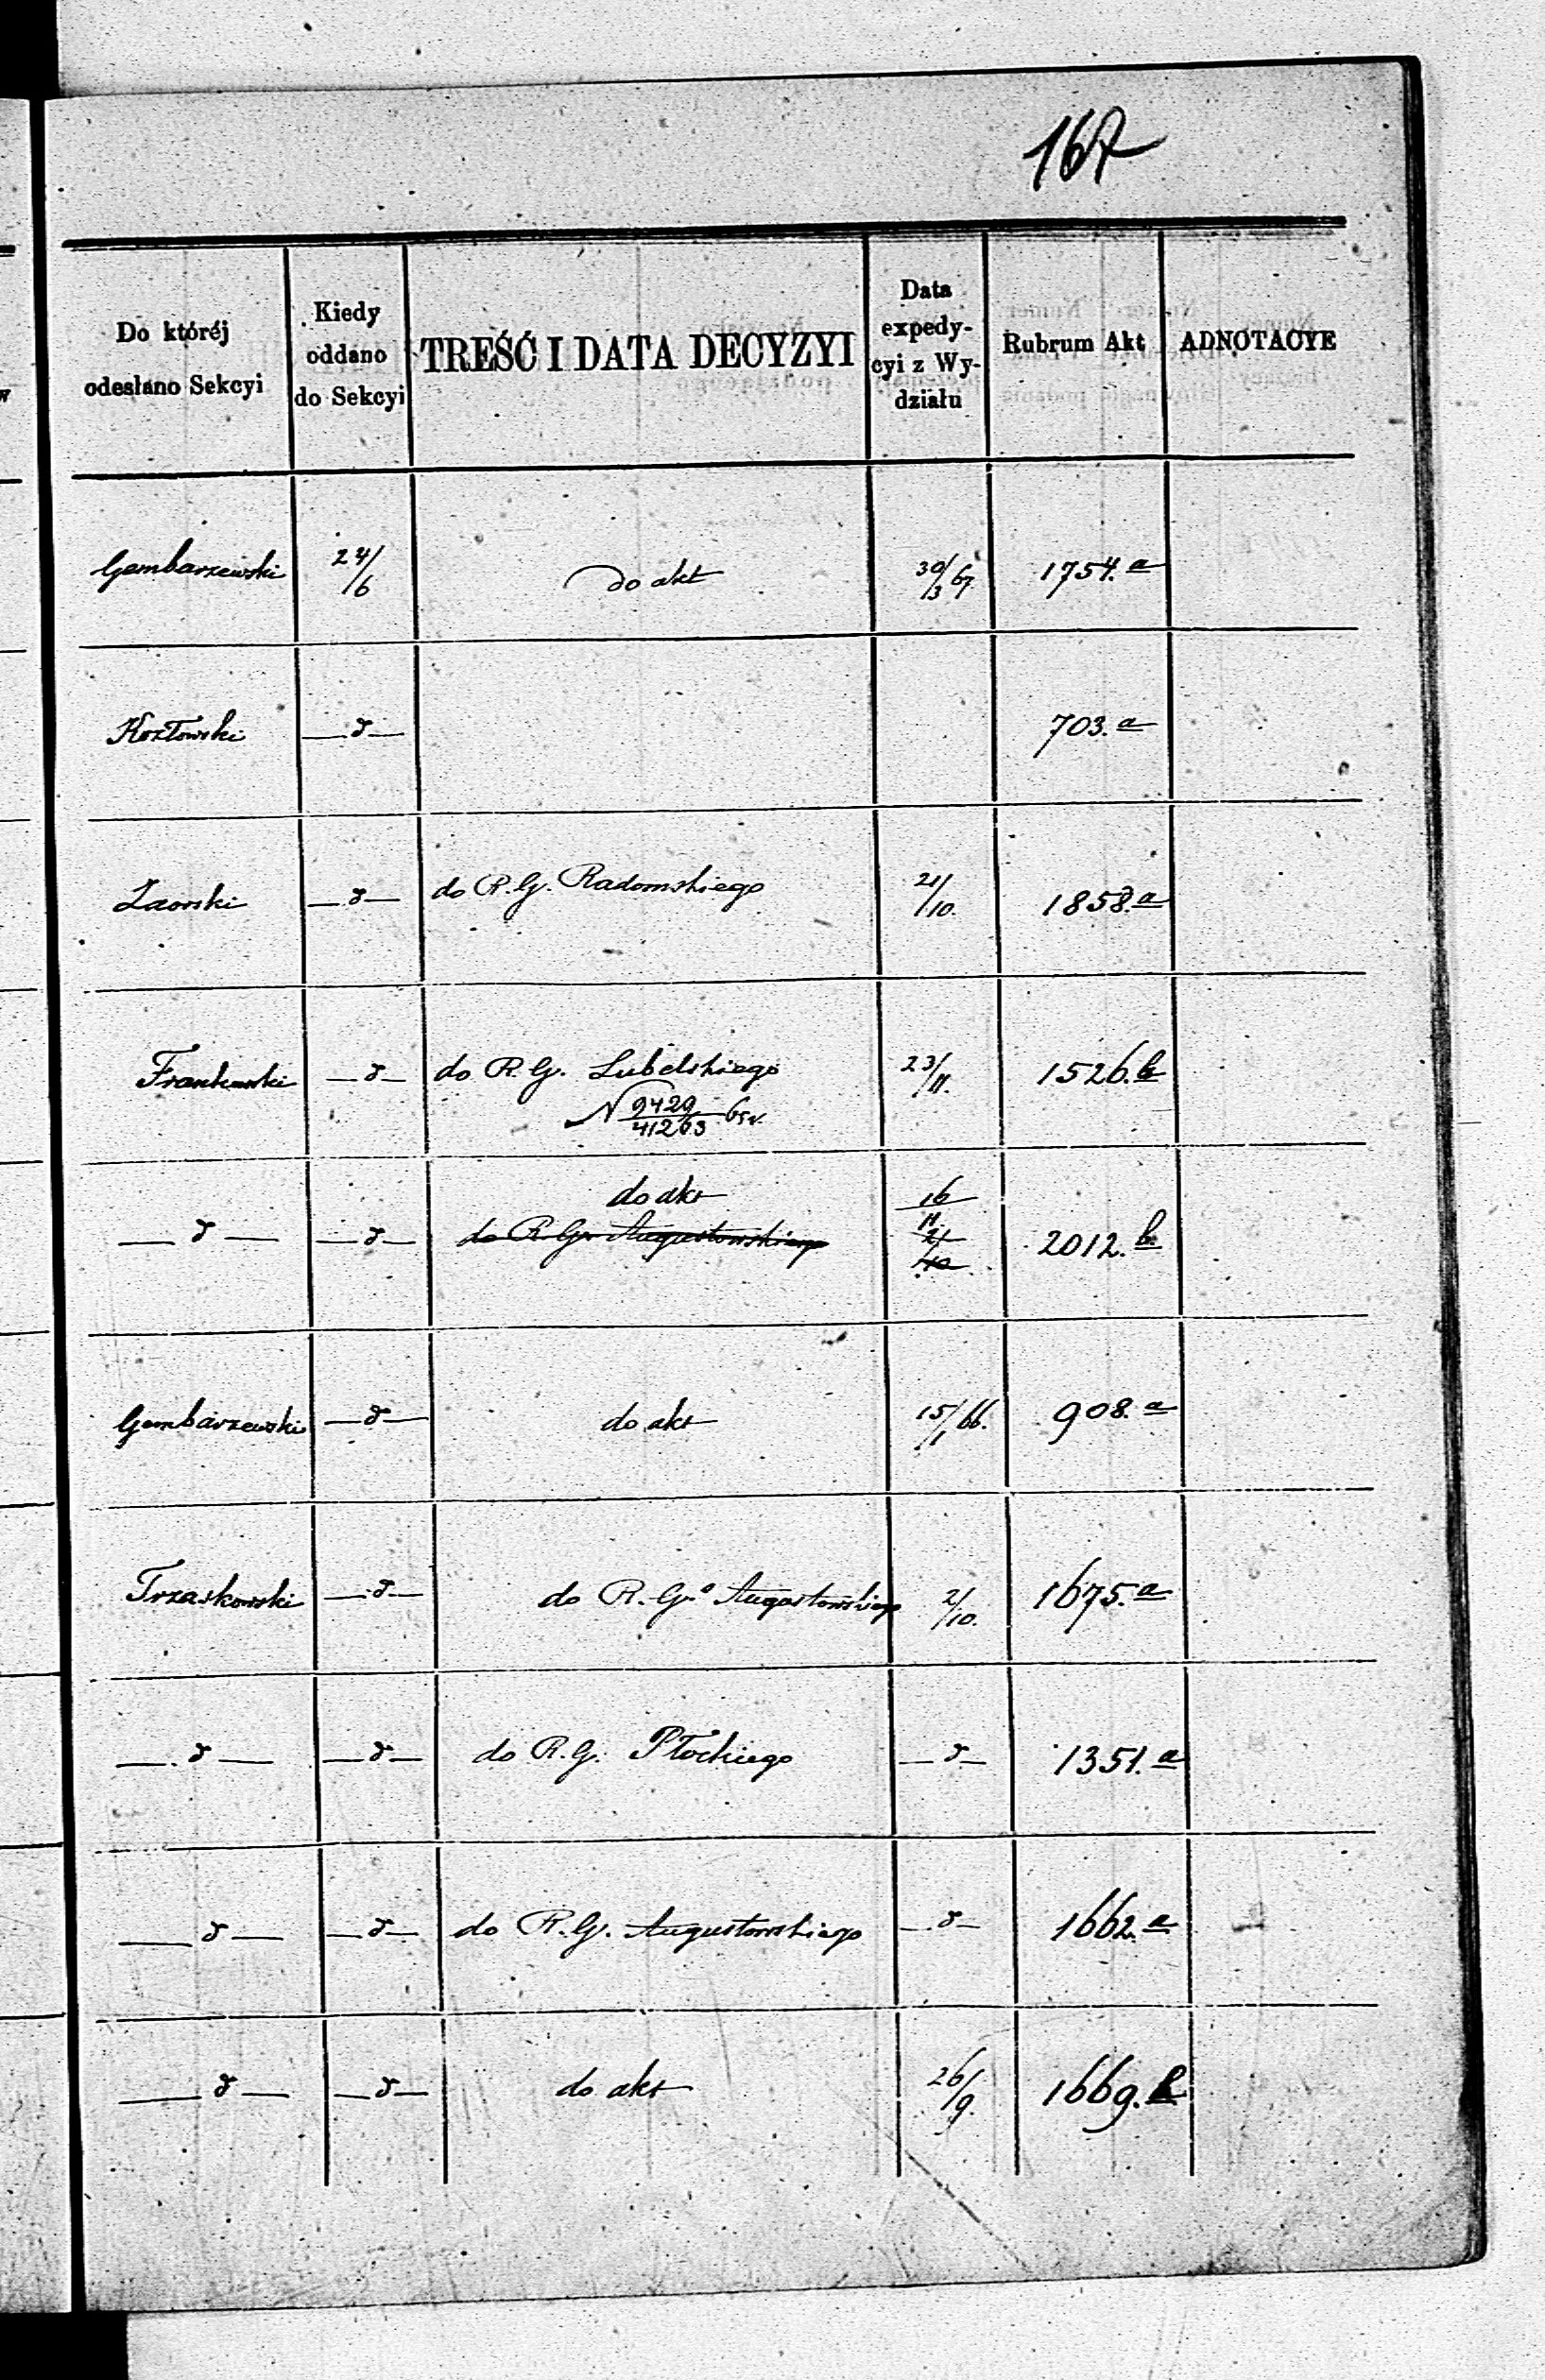 167
Do któréj odesłano Sekcyi | Kiedy oddano do Sekcyi | TREŚĆ I DATA DECYZYI | Data expedycyi z Wydziału | Rubrum Akt | ADNOTACYE
Gembarzewski | 24/6 | do akt | 30/3 67 | 1754.a
Kozłowski | —d— | 703.a
Zaorski | —d— | do R.G. Radomskiego | 21/10. | 1858.a
Frankowski | —d— | do R.G. Lubelskiego | 23/11. | 1526.b
N 9429/41263
—d— | —d— | do akt | 16/11 | 2012.b
do R.G. Augustowskiego | 21/10
Gembarzewski | —d— | do akt | 15/1 66. | 908.a
Trzaskowski | —d— | do R.G. Augustowskiego | 2/10. | 1675.a
—d— | —d— | do R.G. Płockiego | —d— | 1351.a
—d— | —d— | do R.G. Augustowskiego | —d— | 1662.a
—d— | —d— | do akt | 26/9. | 1669.b